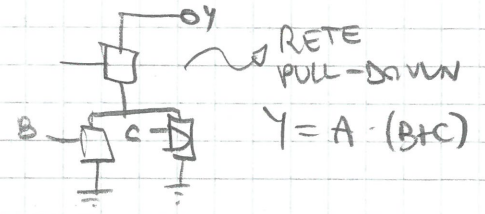 Y
RETE
PULL-DOWN
B
C
Y = A · (B+C)